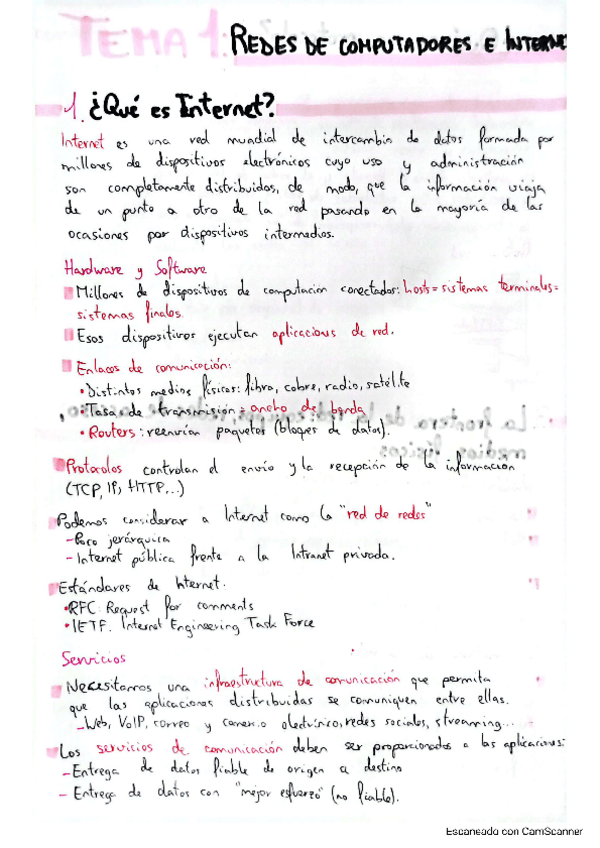 TEMA 1: REDES DE COMPUTADORES E INTERNE
1. ¿Qué es Internet?
Internet es una red mundial de intercambio de datos formada por
millones de dispositivos electrónicos cuyo uso y administración
son completamente distribuidos, de modo, que la información viaja
de un punto a otro de la red pasando en la mayoría de las
ocasiones por dispositivos intermedios.
Hardware y Software
Millones de dispositivos de computación conectados: hosts = sistemas terminales =
sistemas finales.
Esos dispositivos ejecutan aplicaciones de red.
Enlaces de comunicación:
• Distintos medios físicos: fibra, cobre, radio, satélite
• Tasas de transmisión = ancho de banda
• Routers: reenvían paquetes (bloques de datos).
Protocolos controlan el envío y la recepción de la información
(TCP, IP, HTTP,...)
Podemos considerar a Internet como la "red de redes"
- Poco jerárquica
- Internet pública frente a la Intranet privada.
Estándares de Internet.
• RFC: Request for comments
• IETF. Internet Engineering Task Force
Servicios
Necesitamos una infraestructura de comunicación que permita
que las aplicaciones distribuidas se comuniquen entre ellas.
- Web, VoIP, correo y comercio electrónico, redes sociales, streaming...
Los servicios de comunicación deben ser proporcionados a las aplicaciones:
- Entrega de datos fiable de origen a destino
- Entrega de datos con "mejor esfuerzo" (no fiable).
Escaneado con CamScanner